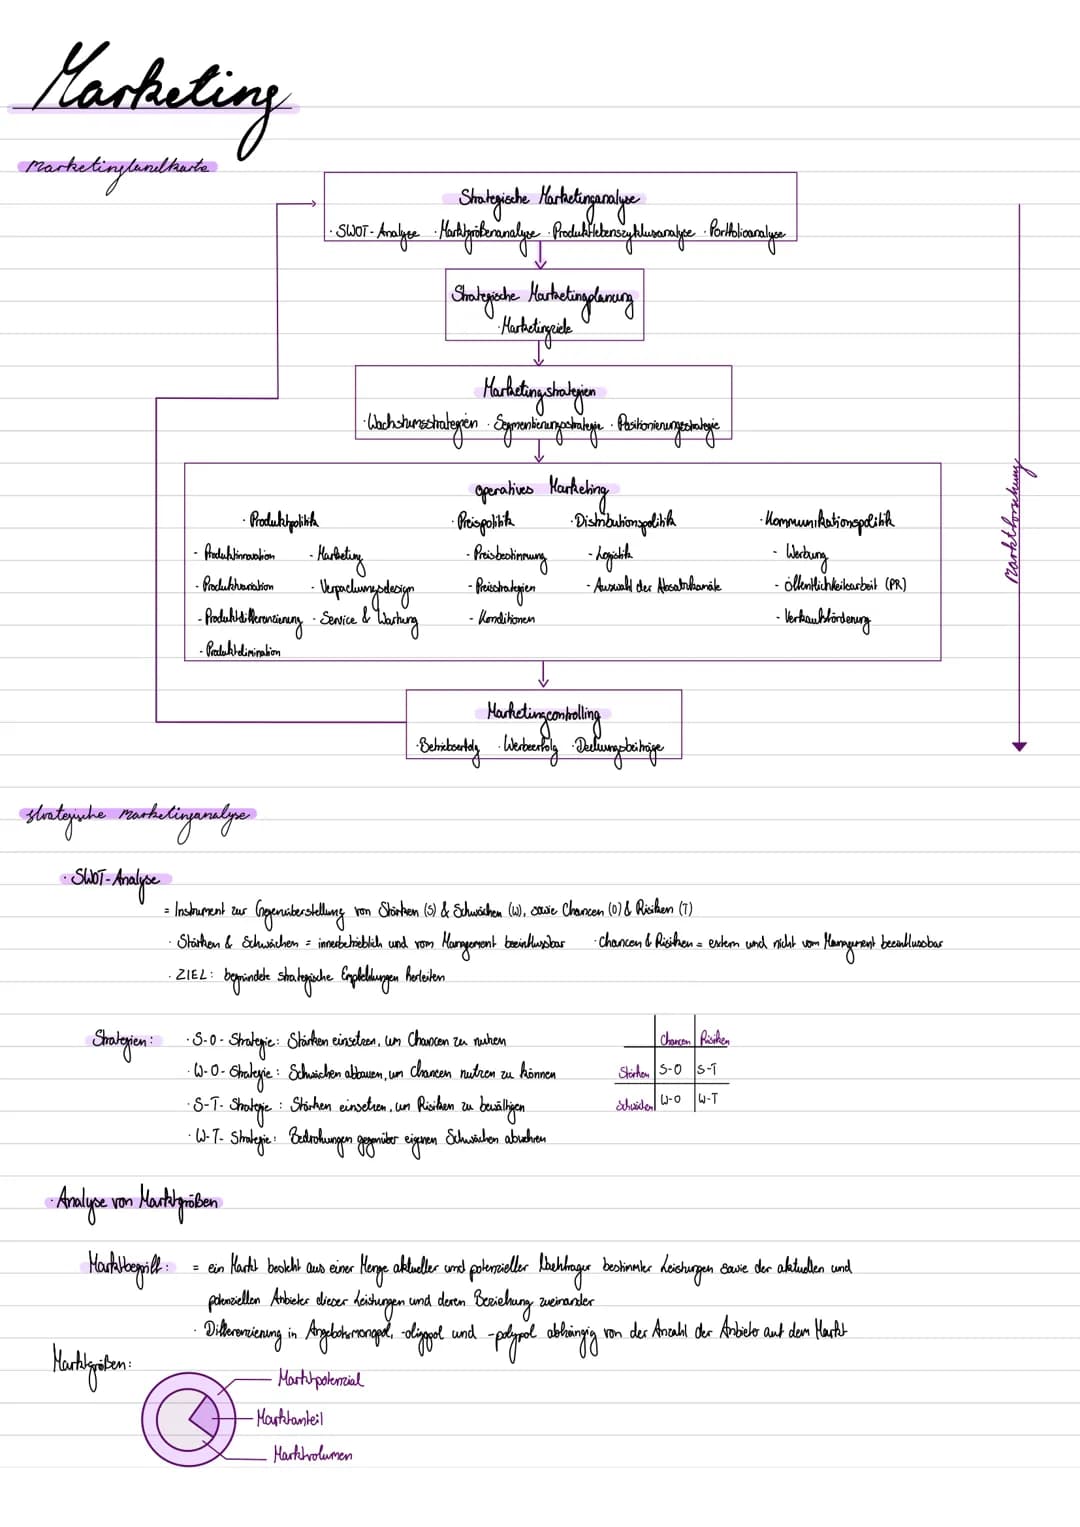 Marketing
Marketinglandkarte
Strategische Marketinganalyse
· SWOT-Analyse · Marktgrößenanalyse · Produktlebenszyklusanalyse · Portfolioanalyse
Strategische Marketingplanung
· Marketingziele
Marketingstrategien
· Wachstumsstrategien · Segmentierungsstrategie · Positionierungsstrategie
operatives Marketing
· Produktpolitik · Preispolitik · Distributionspolitik · Kommunikationspolitik
- Produktinnovation - Marketing - Preisbestimmung - Logistik - Werbung
- Produktvariation - Verpackungsdesign - Preisstrategien - Auswahl der Absatzkanäle - Öffentlichkeitsarbeit (PR)
- Produktdifferenzierung - Service & Wartung - Konditionen - Verkaufsförderung
- Produktelimination
Marketingcontrolling
· Betriebserfolg · Werbeerfolg · Deckungsbeiträge
Marktforschung
strategische Marketinganalyse
· SWOT-Analyse
= Instrument zur Gegenüberstellung von Stärken (S) & Schwächen (W), sowie Chancen (O) & Risiken (T)
· Stärken & Schwächen = innerbetrieblich und vom Mangement beeinflussbar · Chancen & Risiken = extern und nicht vom Mangement beeinflussbar
· ZIEL: begründete strategische Empfehlungen herleiten
Strategien: · S-O-Strategie: Stärken einsetzen, um Chancen zu nutzen
· W-O-Strategie: Schwächen abbauen, um Chancen nutzen zu können
· S-T-Strategie: Stärken einsetzen, um Risiken zu bewältigen
· W-T-Strategie: Bedrohungen gegenüber eigenen Schwächen abwehren
Chancen Risiken
Stärken S-O S-T
Schwächen W-O W-T
· Analyse von Marktgrößen
Marktbegriff: = ein Markt besteht aus einer Menge aktueller und potenzieller Nachfrager bestimmter Leistungen sowie der aktuellen und
potenziellen Anbieter dieser Leistungen und deren Beziehung zueinander
· Differenzierung in Angebotsmonopol, -oligopol und -polypol abhängig von der Anzahl der Anbieter auf dem Markt
Marktgrößen:
Marktpotenzial
Marktanteil
Marktvolumen